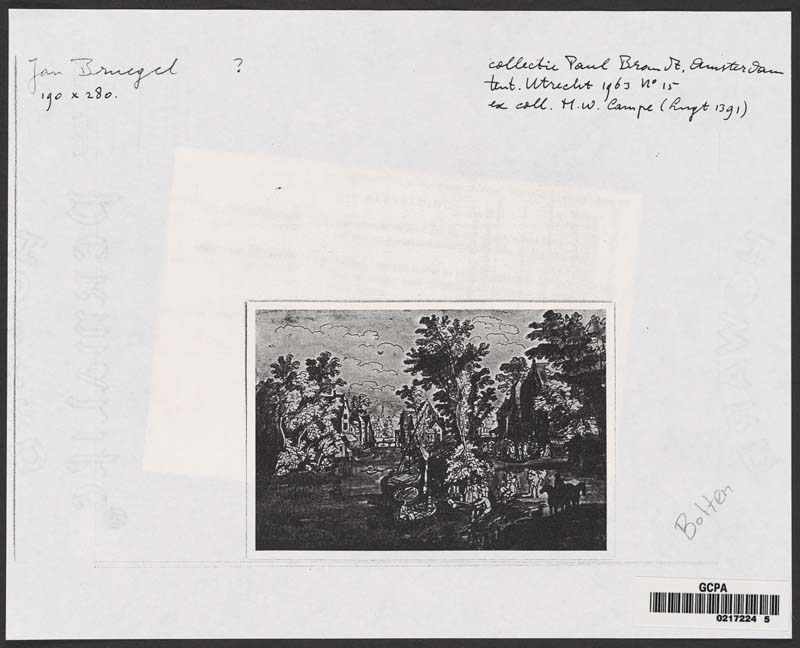 Jan Bruegel ?
190 x 280.
collectie Paul Brandt, Amsterdam
tent. Utrecht 1963 No 15
ex coll. H.W. Campe (Lugt 1391)
Bolten
GCPA
0217224 5